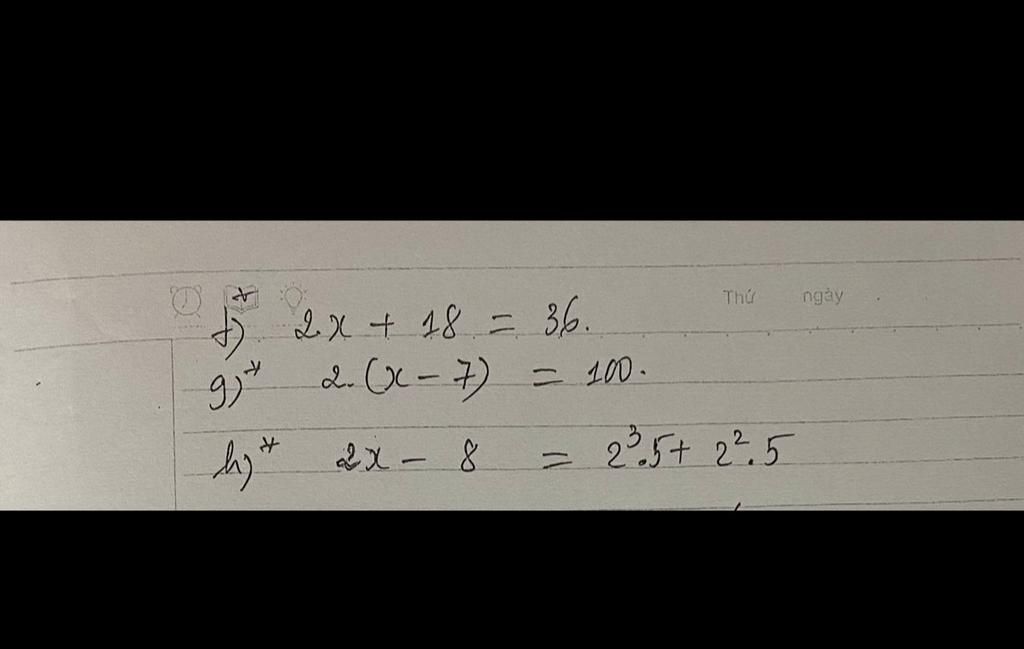 Thứ ngày
f)* 2x + 18 = 36.
g)* 2.(x - 7) = 100.
h)* 2x - 8 = 2³.5 + 2².5